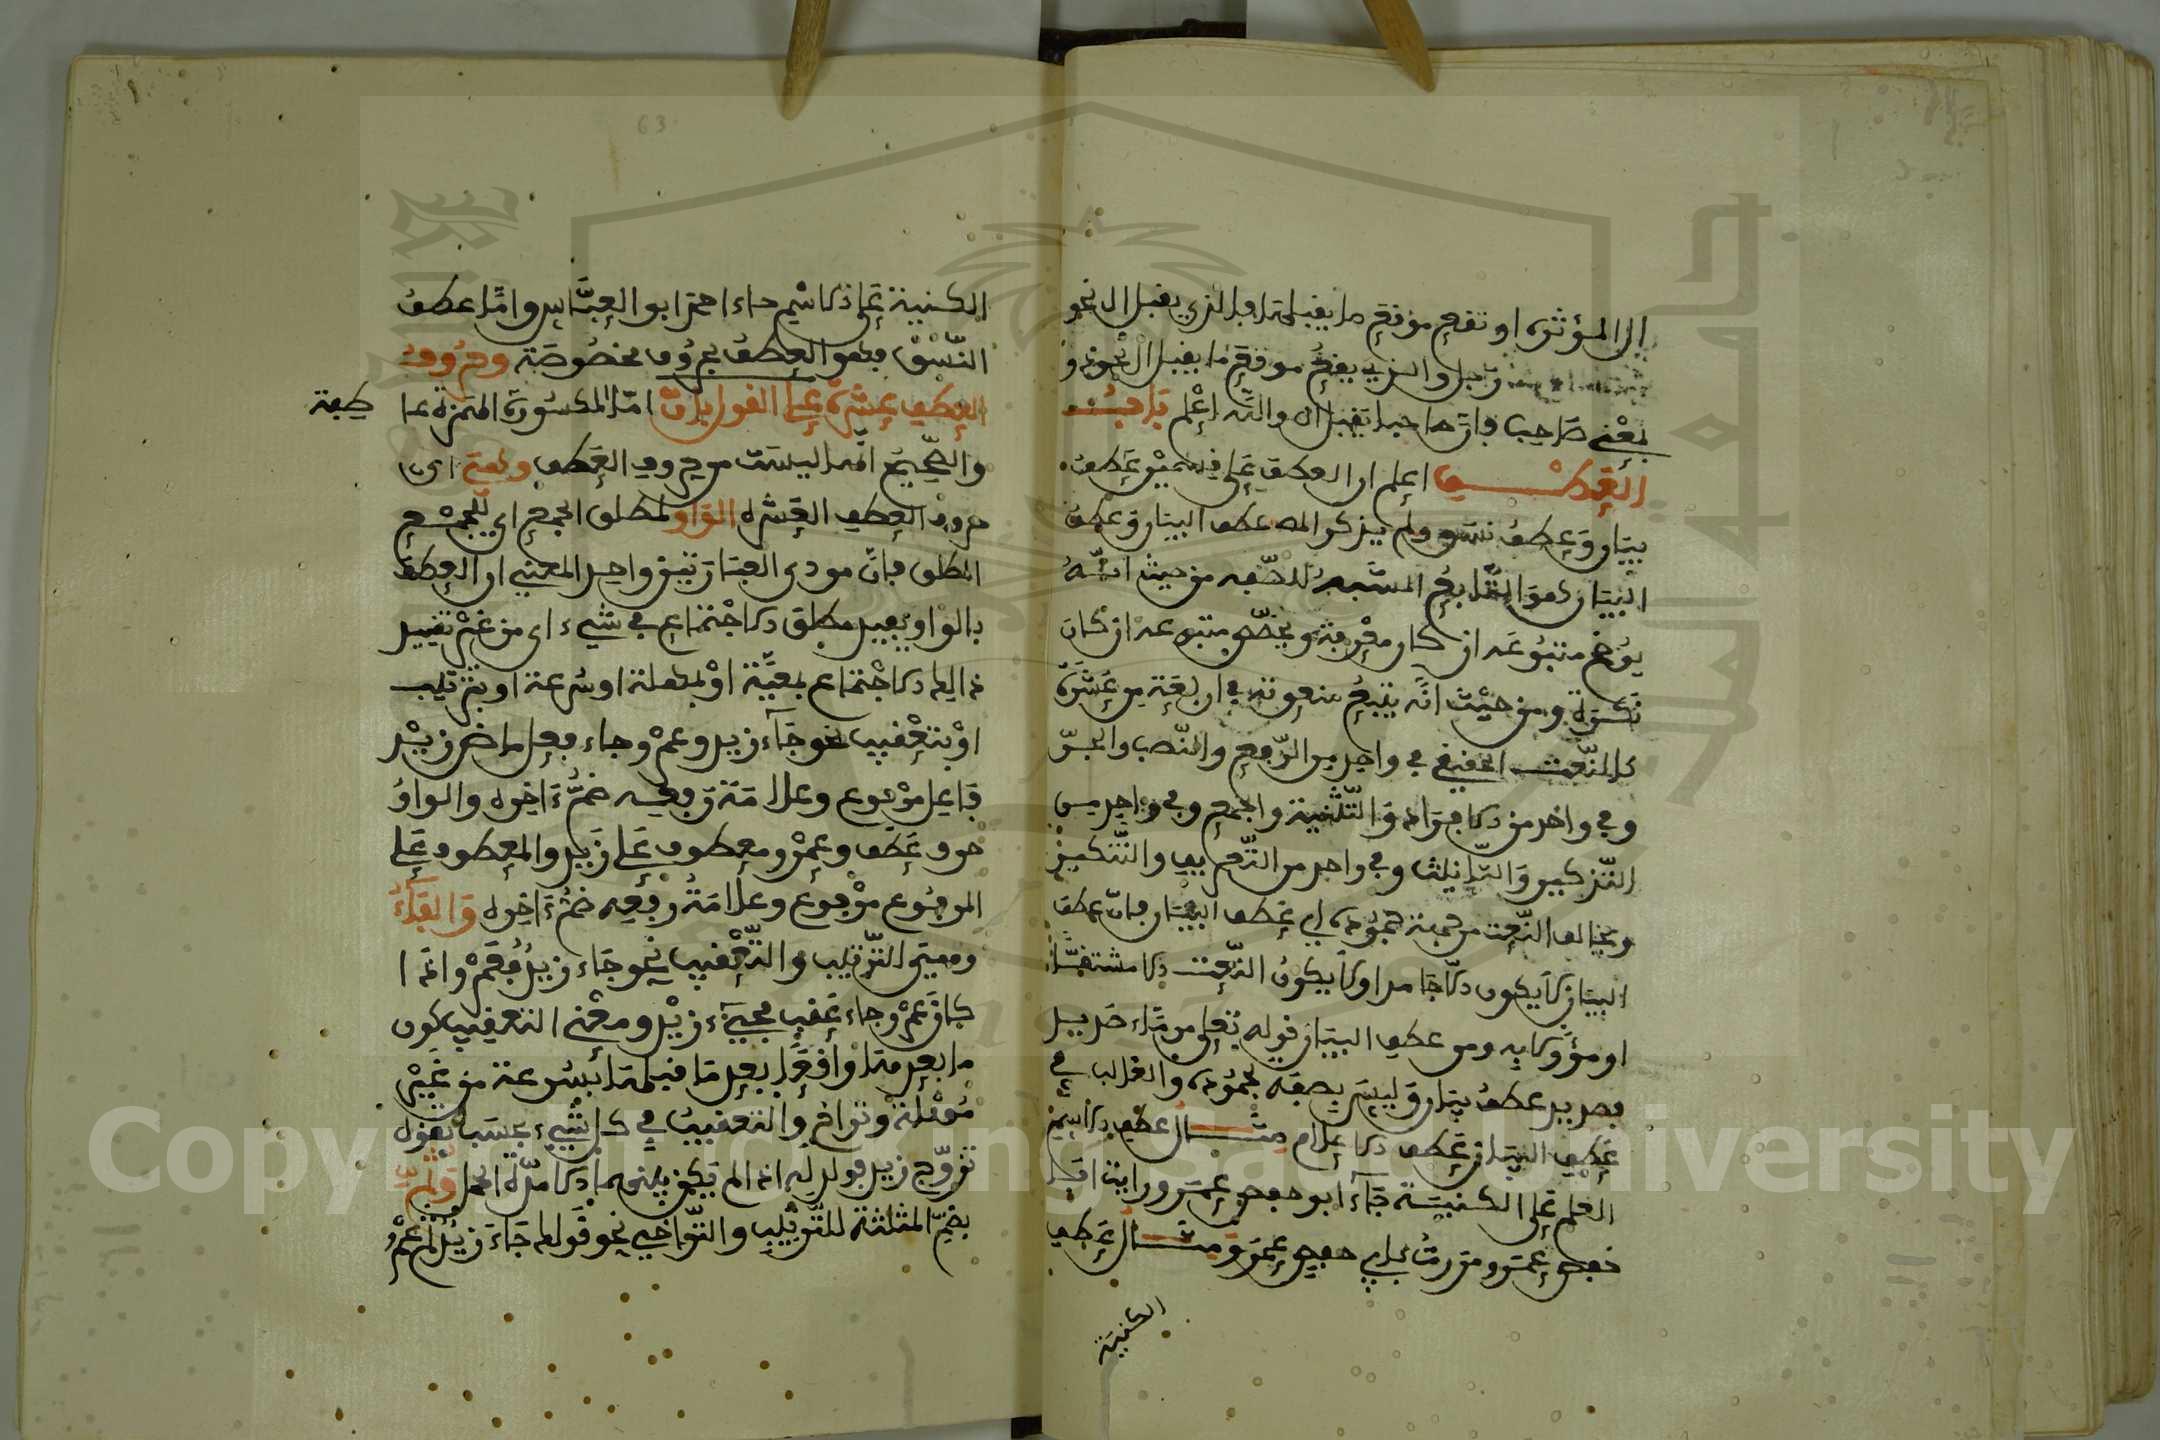 ال المؤثرة او تقع موقع ما يقبلها فالذي يقبل ال نحو
رجل والذي يقع موقع ما يقبل ال نحو ذو
بمعنى صاحب فان صاحب يقبل ال والله اعلم باب
العطف اعلم ان العطف على قسمين عطف
بيان وعطف نسق ولم يذكر المص عطف البيان وعطف
البيان هو التابع المشبه للصفة من حيث انه
يوضح متبوعه ان كان معرفة ويخصص متبوعه ان كان
نكرة ومن حيث انه يتبع منعوته في اربعة من عشرة
كالنعت الحقيقي في واحد من الرفع والنصب والجر
وفي واحد من الافراد والتثنية والجمع وفي واحد من
التذكير والتانيث وفي واحد من التعريف والتنكير
ويخالف النعت من جهة جموده اي عطف البيان فان عطف
البيان لا يكون الا جامدا ولا يكون النعت الا مشتقا
او مؤولا به ومن عطف البيان قوله تعلى من ماء صديد
فصديد عطف بيان وليس بصفة لجموده والغالب في
عطف البيان عطف الاعلام مثال عطف الاسم
العلم على الكنية جاء ابو حفص عمر ورايت ابا
حفص عمر ومررت بابي حفص عمر ومثال عطف
الكنية
63
الكنية على الاسم جاء احمد ابو العباس واما عطف
النسق فهو العطف بحروف مخصوصة وحروف
العطف عشرة على القول بان اما المكسورة الهمزة عا
طفة
والصحيح انها ليست من حروف العطف وهي اي
حروف العطف العشرة الواو لمطلق الجمع اي للجمع
المطلق فان مودى العبارتين واحد المعنى ان العطف
بالواو يفيد مطلق الاجتماع في شيء اي من غير تقييد
ذالك الاجتماع بمعية او بمهلة او سرعة او بترتيب
او بتعقيب نحو جاء زيد وعمرو جاء فعل ماض زيد
فاعل مرفوع وعلامة رفعه ضم ءاخره والواو
حرف عطف وعمرو معطوف على زيد والمعطوف على
المرفوع مرفوع وعلامة رفعه ضم ءاخره والفاء
وهي للترتيب والتعقيب نحو جاء زيد فعمرو اذا
كان عمرو جاء عقب مجيء زيد ومعنى التعقيب كون
ما بعدها واقعا بعد ما قبلها بسرعة من غير
مهلة وتراخ والتعقيب في كل شيء بحسبه تقول
تزوج زيد فولد له اذا لم يكن بينهما الا مدة الحمل وثم
بضم المثلثة للترتيب والتراخي نحو قولك جاء زيد ثم عمرو
Copyright © King Saud University